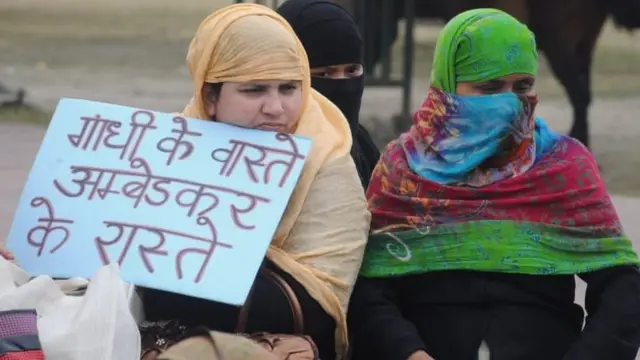 गांधी के वास्ते
अम्बेडकर
के रास्ते